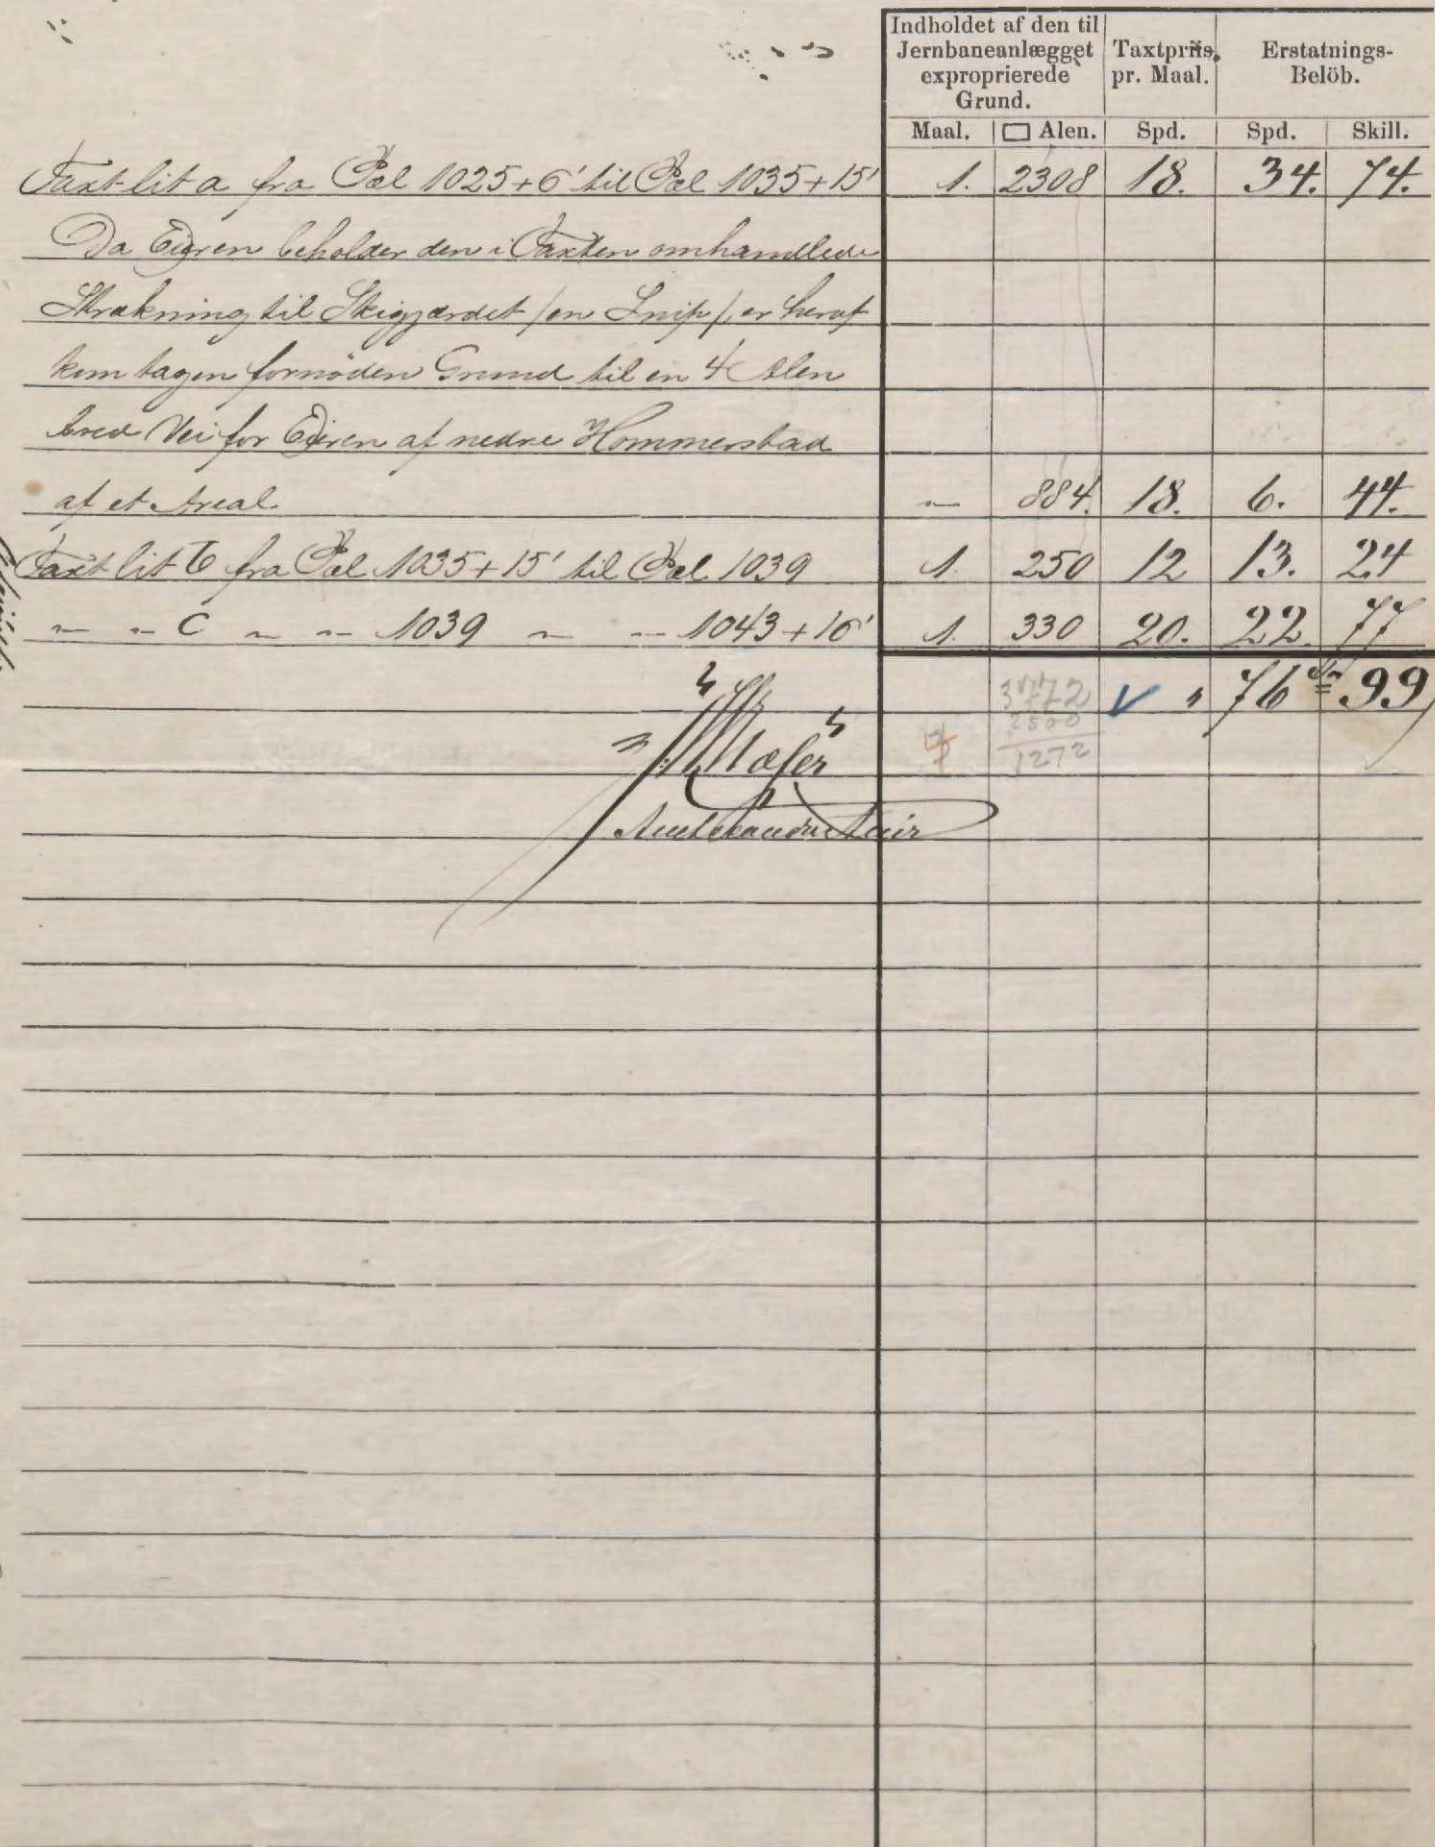 Indholdet af den til
Jernbaneanlægget
exproprierede
Grund.
Taxtpriis
pr. Maal.
Erstatnings-
Belöb.
Maal. □ Alen. Spd. Spd. Skill.
Taxt lit a fra Pæl 1025+6' til Pæl 1035+15' 1. 2308 18. 34. 74.
Da Eieren beholder den i Taxten omhandlede
Strækning til Skigjærdet /en Snip/, er heraf
kun tagen fornöden Grund til en 4 Alen
bred Vei for Eieren af nedre Hommerstad
af et Areal " 884. 18. 6. 44.
Taxt lit b fra Pæl 1035+15' til Pæl 1039 1. 250 12 13. 24
" " C " " 1039 " " 1043+16' 1. 330 20. 22. 77
3772 " 76 99
2500
1272